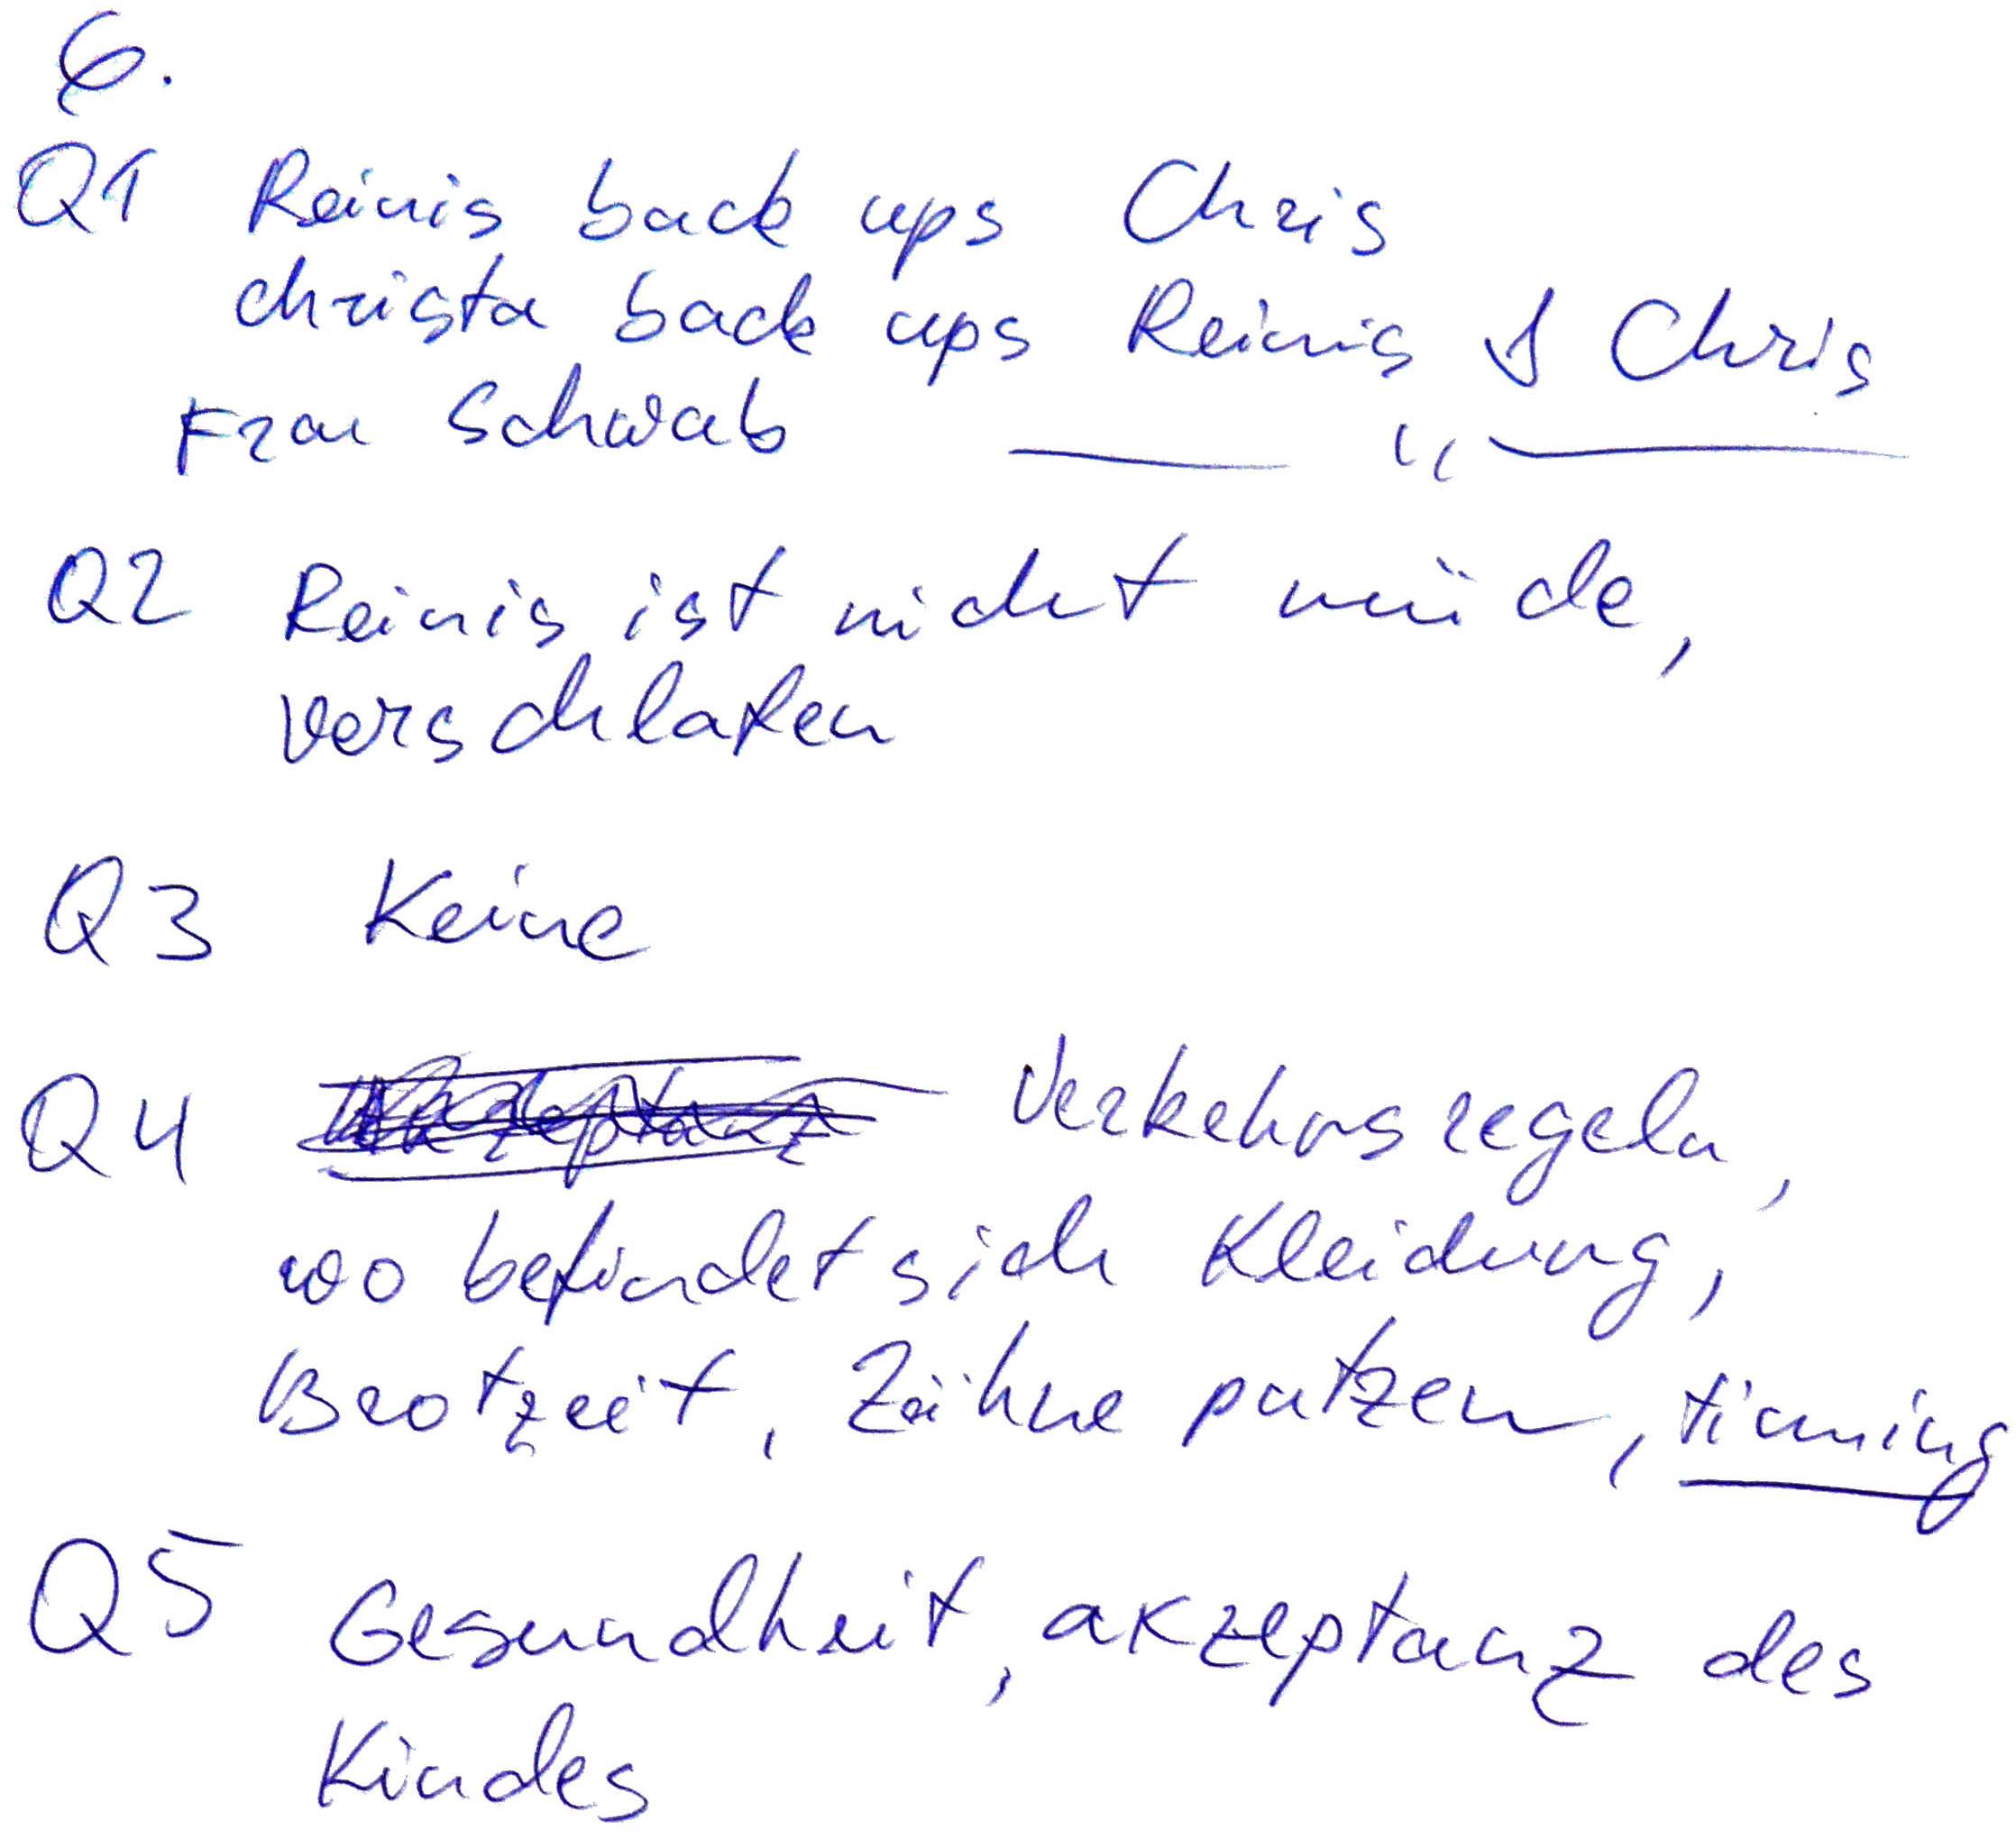 6.
Q1 Reinis back ups Chris
Christa back ups Reinis & Chris
Frau Schwab —— " ——
Q2 Reinis ist nicht müde,
verschlafen
Q3 Keine
Q4 Verkehrsregeln,
wo befindet sich Kleidung,
Brotzeit, Zähne putzen, timing
Q5 Gesundheit, akzeptanz des
Kindes